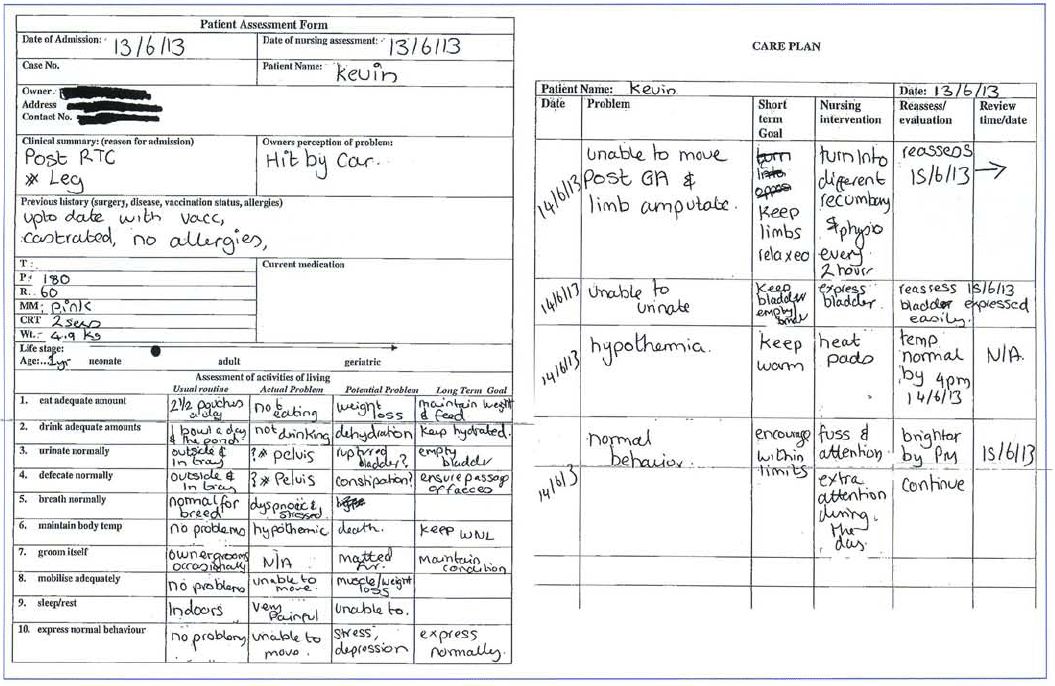 Patient Assessment Form
Date of Admission: 13/6/13
Date of nursing assessment: 13/6/13
Case No.
Patient Name: Kevin
Owner.
Address
Contact No.
Clinical summary: (reason for admission)
Post RTC
* Leg
Owners perception of problem:
Hit by Car.
Previous history (surgery, disease, vaccination status, allergies)
upto date with vacc,
castrated, no allergies,
T:
P: 180
R. 60
MM: pink
CRT 2secs
Wt.- 4.9 kg
Current medication
Life stage:
Age:...1yr neonate adult geriatric
Assessment of activities of living
Usual routine Actual Problem Potential Problem Long Term Goal
1. eat adequate amount
2½ pouches
a day
not
eating
weight
loss
maintain weight
& feed
2. drink adequate amounts
1 bowl a day
& the pond?
not drinking
dehydration
keep hydrated.
3. urinate normally
outside &
in tray
?* pelvis
ruptured
bladder?
empty
bladder
4. defecate normally
outside &
in tray
?* Pelvis
constipation?
ensure passage
of faeces
5. breath normally
normal for
breed
dyspnoeic &
stressed
6. maintain body temp
no problems
hypothemic
death.
keep WNL
7. groom itself
owner grooms
occasionally
N/A
matted
fur.
Maintain
condition
8. mobilise adequately
no problems
unable to
move.
muscle/weight
loss
9. sleep/rest
Indoors
very
Painful
unable to.
10. express normal behaviour
no problems
unable to
move.
stress,
depression
express
normally.
CARE PLAN
Patient Name: Kevin
Date: 13/6/13
Date
Problem
Short
term
Goal
Nursing
intervention
Reassess/
evaluation
Review
time/date
14/6/13
unable to move
Post GA &
limb amputate.
turn
into
keep
limbs
relaxed
turn into
different
recumbancy
& physio
every
2 hour
reassess
15/6/13
→
14/6/13
unable to
urinate
keep
bladder
empty
express
bladder.
reassess 15/6/13
bladder expressed
easily.
14/6/13
hypothemia.
keep
warm
heat
pads
temp
normal
by 4pm
14/6/13
N/A.
14/6/13
normal
behavior.
encourage
within
limits
fuss &
attention
extra
attention
during
the
day
brighter
by PM
continue
15/6/13